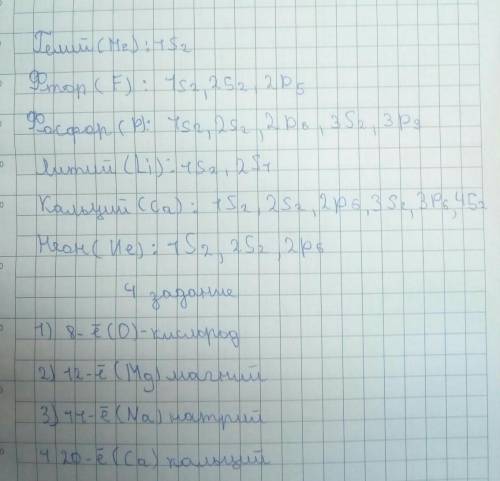 Гелий (He): 1s2
Фтор (F): 1s2, 2s2, 2p5
Фосфор (P): 1s2, 2s2, 2p6, 3s2, 3p3
Литий (Li): 1s2, 2s1
Кальций (Ca): 1s2, 2s2, 2p6, 3s2, 3p6, 4s2
Неон (Ne): 1s2, 2s2, 2p6
4 задание
1) 8-ē (O)-кислород
2) 12-ē (Mg) магний
3) 11-ē (Na) натрий
4 20-ē (Ca) кальций